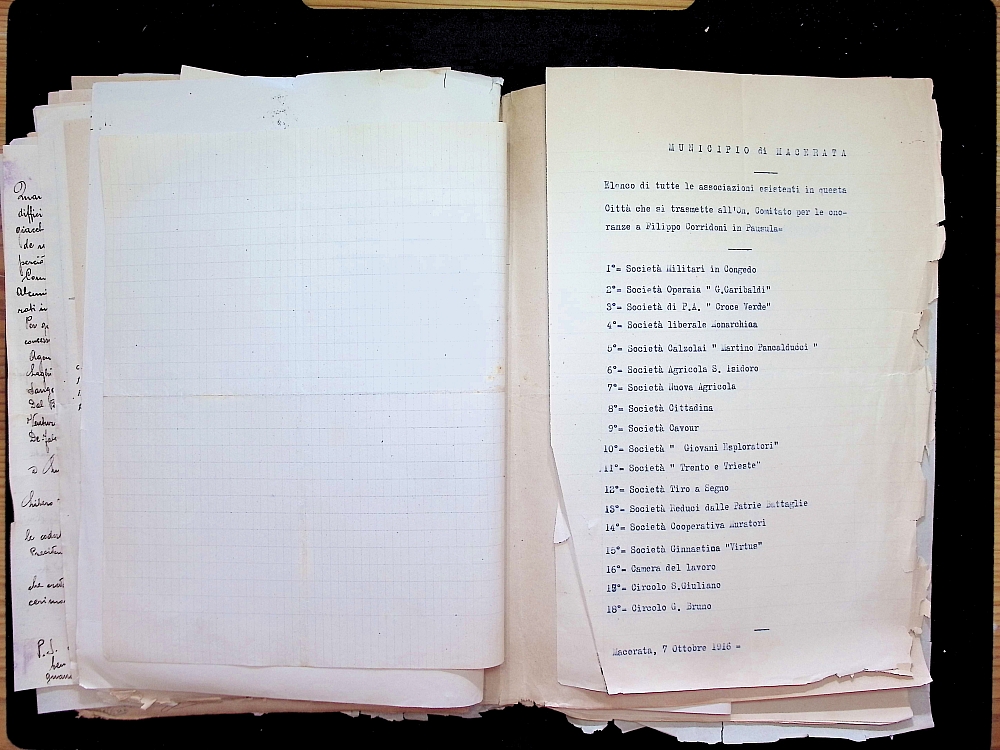 MUNICIPIO di MACERATA
Elenco di tutte le associazioni esistenti in questa
Città che si trasmette all'On. Comitato per le ono-
ranze a Filippo Corridoni in Pausula=
1°= Società Militari in Congedo
2°= Società Operaia " G.Garibaldi"
3°= Società di P.A. " Croce Verde"
4°- Società liberale Monarchica
5°- Società Calzolai " Martino Pancalducci "
6°= Società Agricola S. Isidoro
7°= Società Nuova Agricola
8°= Società Cittadina
9°= Società Cavour
10°= Società " Giovani Esploratori"
11°= Società " Trento e Trieste"
12°= Società Tiro a Segno
13°- Società Reduci dalle Patrie Battaglie
14°= Società Cooperativa Muratori
15°= Società Ginnastica "Virtus"
16°- Camera del lavoro
Circolo S.Giuliano
18°- Circolo G. Bruno
Macerata, 7 Ottobre 1916 =
diffici
de
Per
P.S.